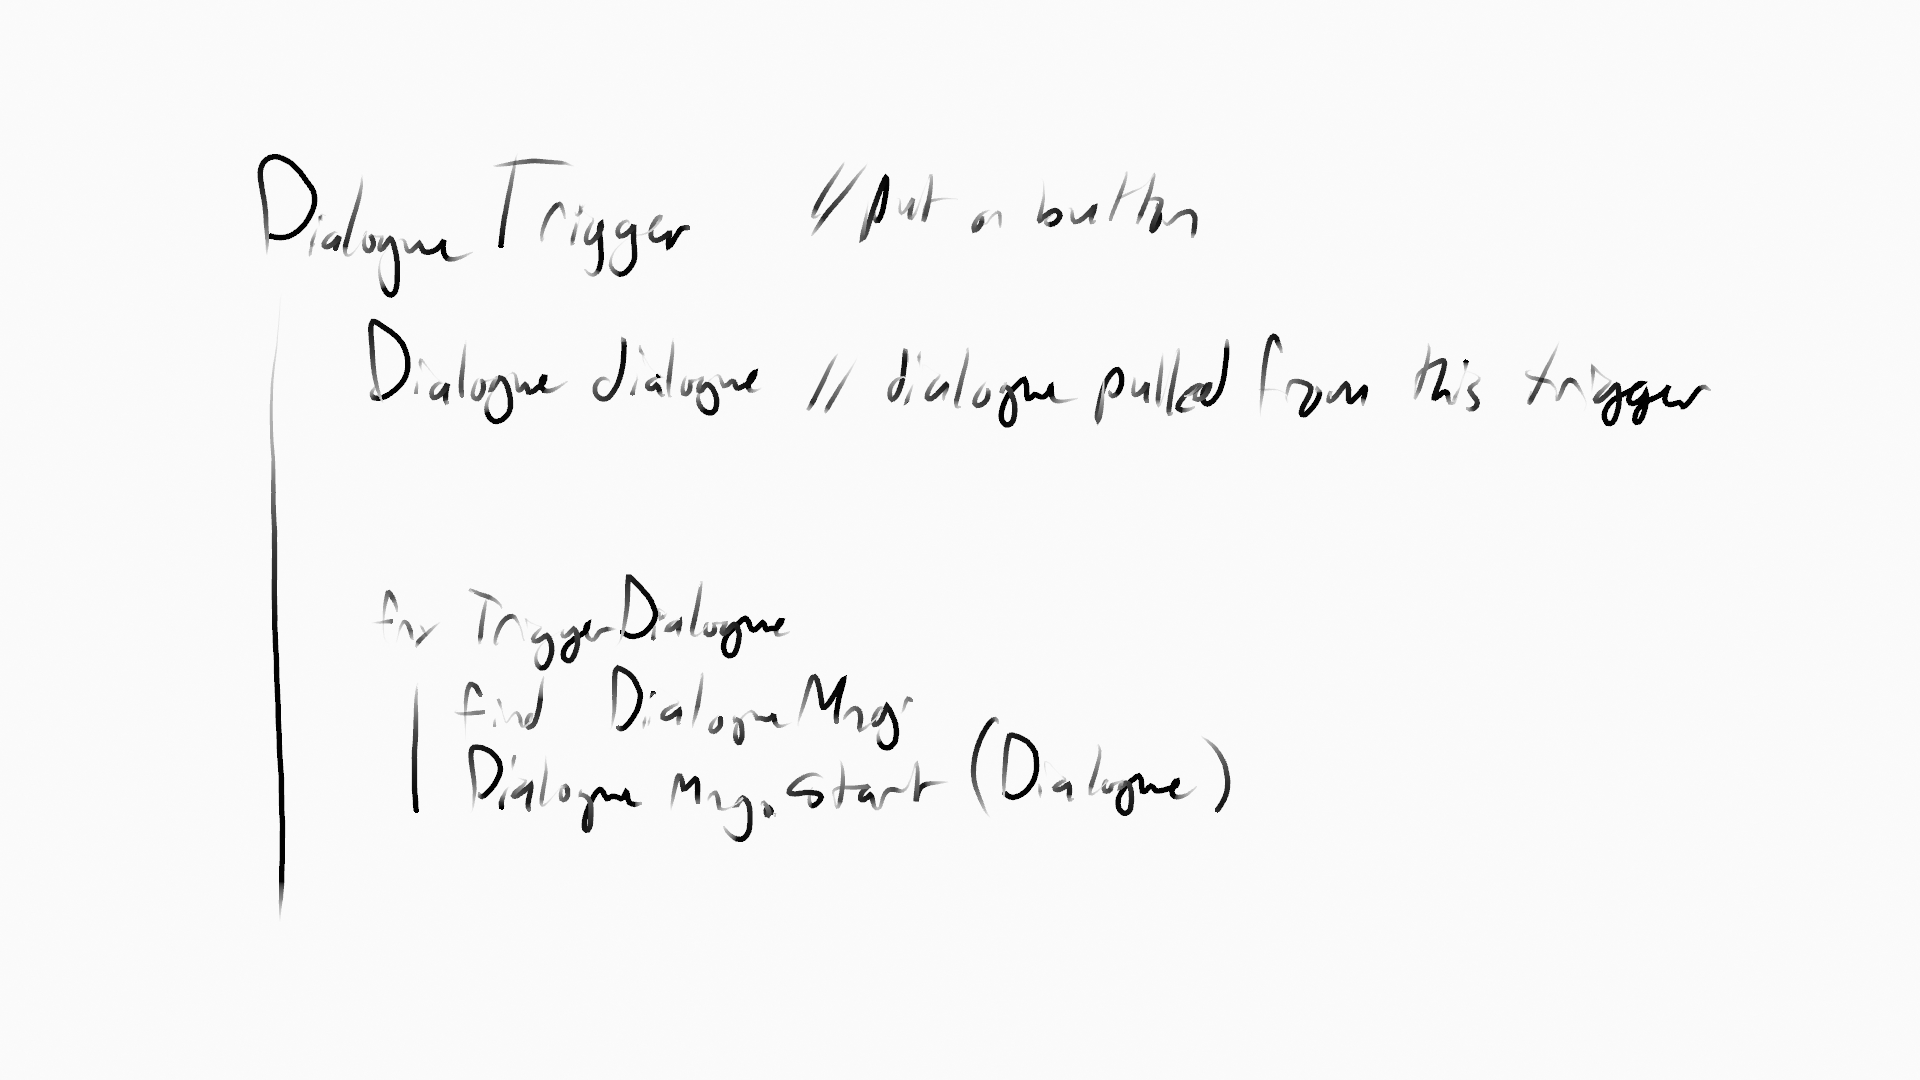 Dialogue Trigger //put on button
Dialogue dialogue // dialogue pulled from this trigger
for TriggerDialogue
find DialogueMngr
Dialogue Mngr.Start (Dialogue)